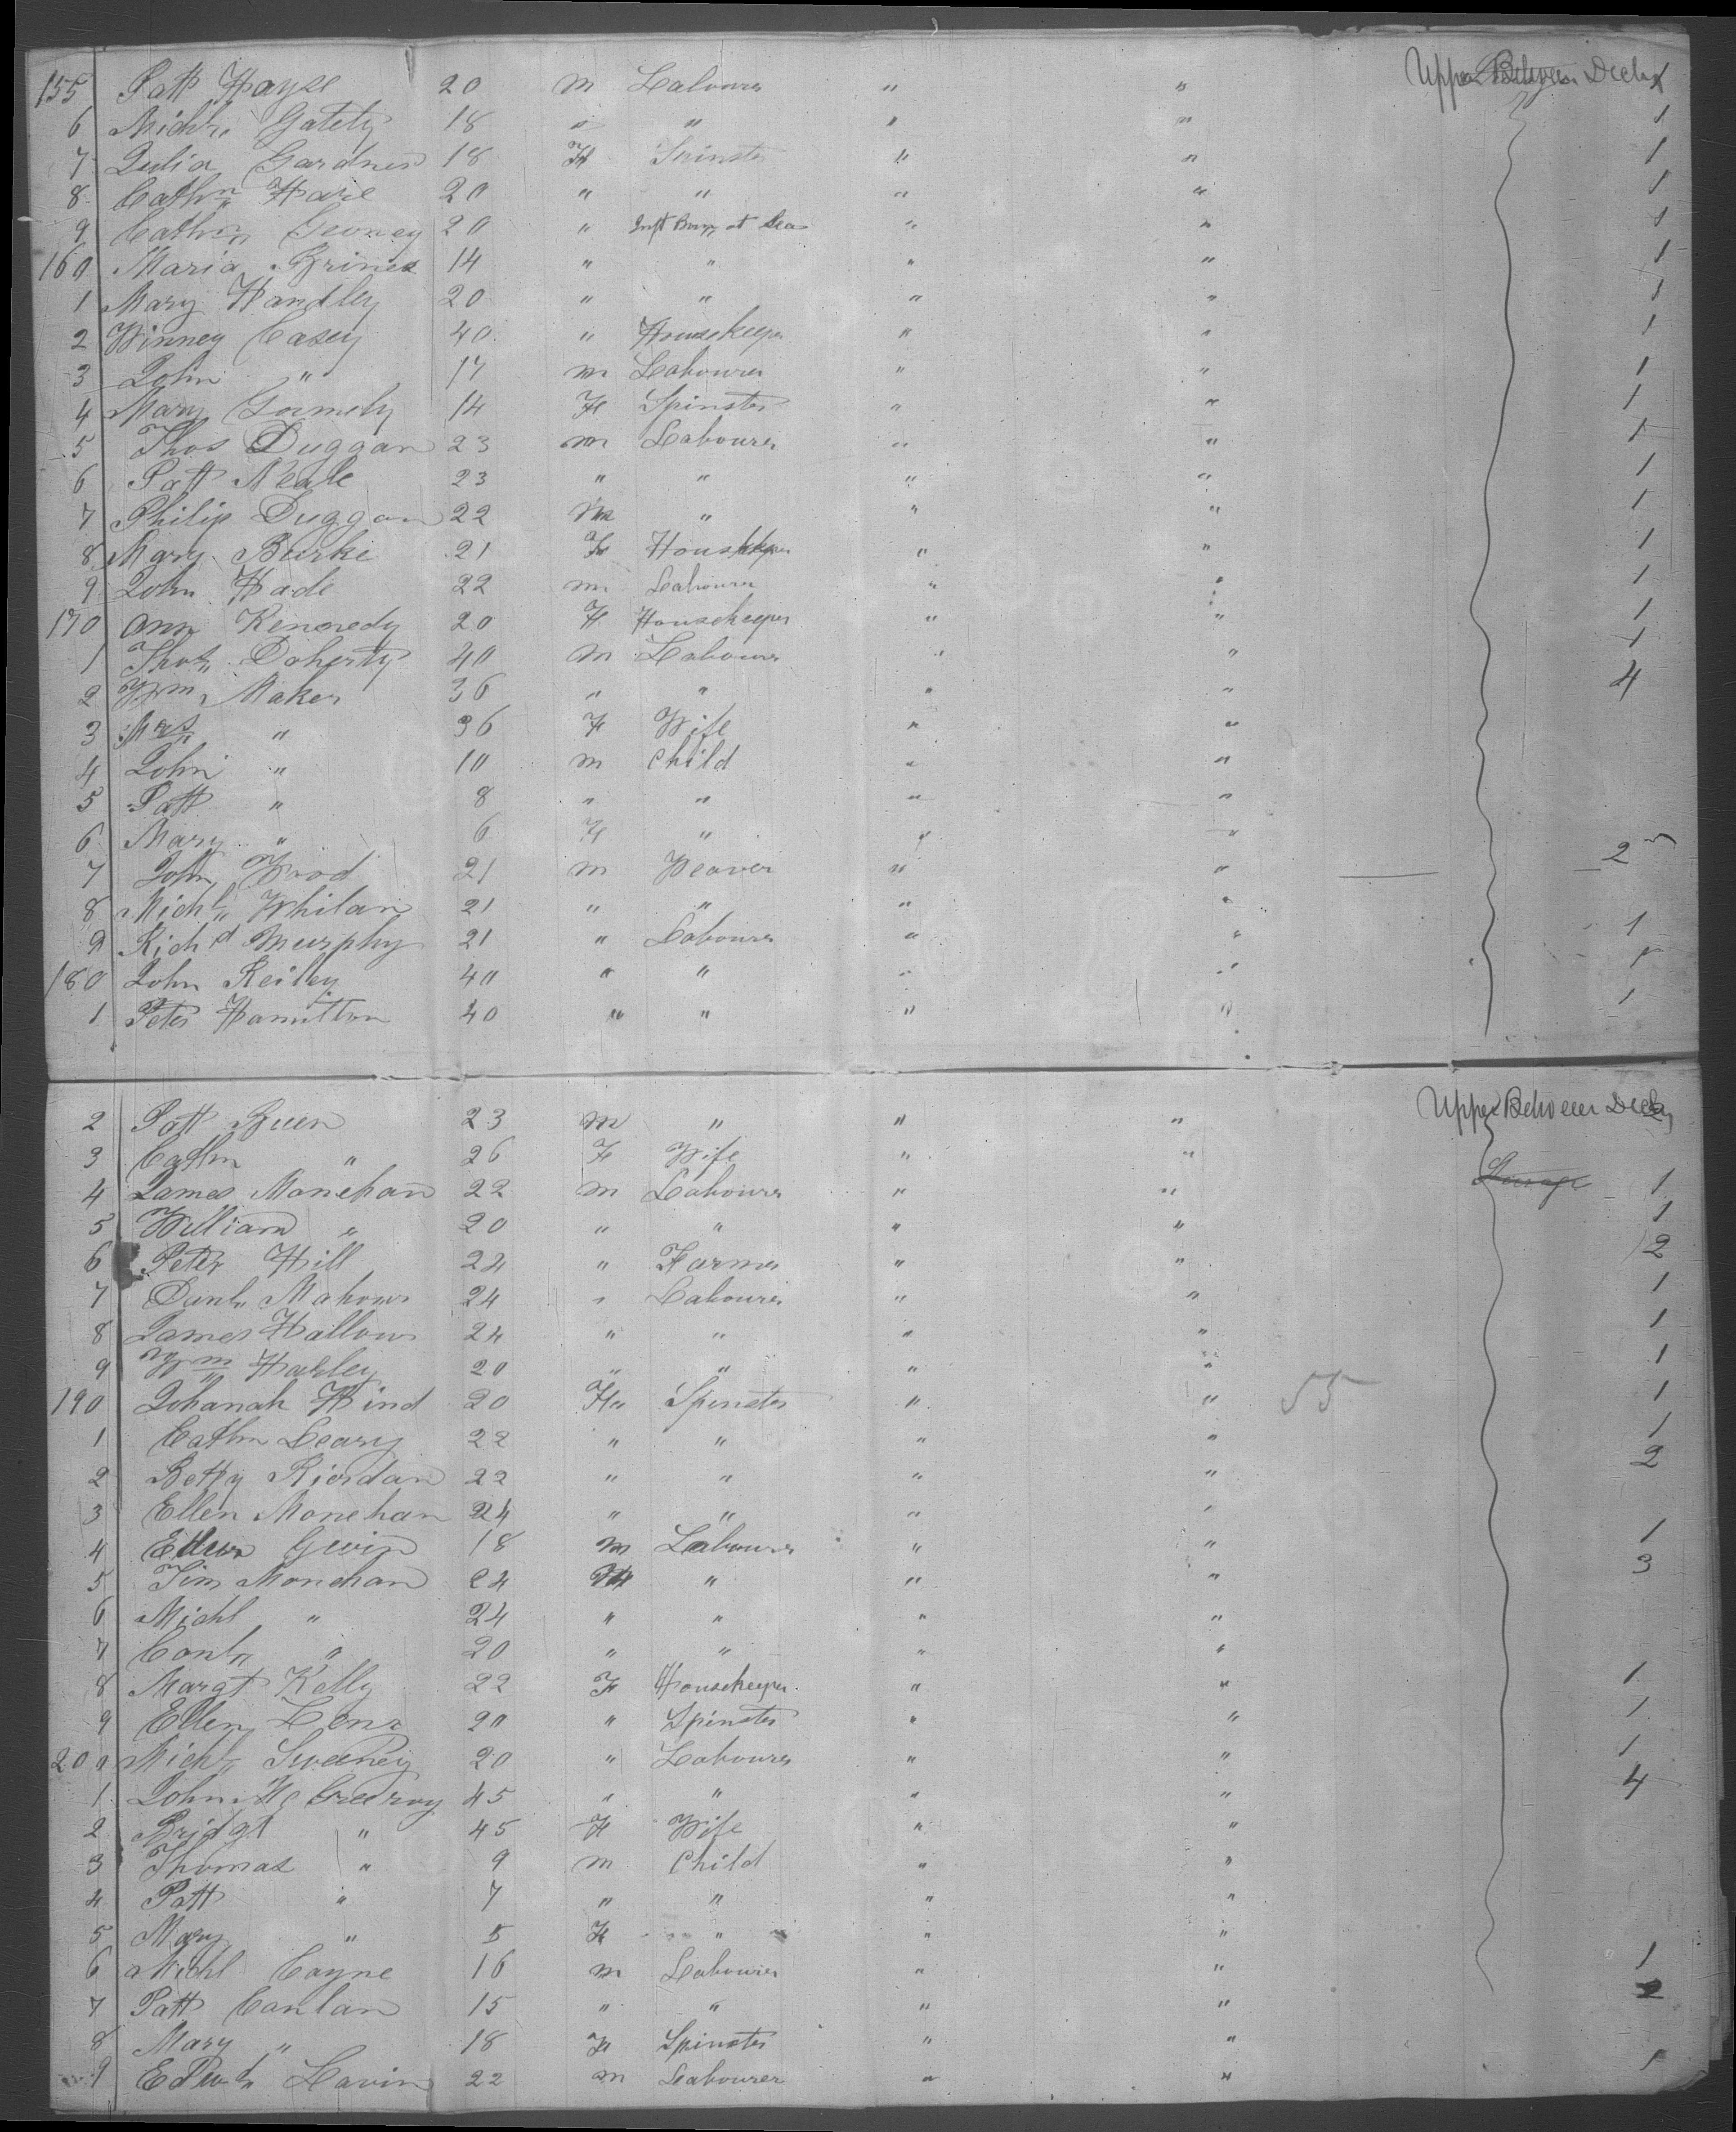 Upper Between Decks
155 Patt Hayse 20 m Labourer " " 1
6 Michl. Gately 18 " " " " 1
7 Julia Gardner 18 F Spinster " " 1
8 Cathn Hare 20 " " " " 1
9 Cathn 20 " at Sea " " 1
160 Maria Grines 14 " " " " 1
1 Mary Handley 20 " " " " 1
2 Winney Casey 40 " Housekeeper " " 1
3 John " 17 m Labourer " " 1
4 Mary Gormely 14 F Spinster " " 1
5 Thos Duggan 23 m Labourer " " 1
6 Patt Neale 23 " " " " 1
7 Philip Duggan 22 m " " " 1
8 Mary Burke 21 F Houskeeper " " 1
9 John Hade 22 m Labourer " " 1
170 Ann Kennedy 20 F Housekeeper " " 1
1 Thos. Doherty 40 m Labourer " " 1
2 Wm Maker 36 " " " " 4
3 Mrs " 36 F Wife " "
4 John " 10 m Child " "
5 Patt " 8 " " " "
6 Mary " 6 F " " "
7 John Wood 21 m Weaver " " 2
8 Michl. Whilan 21 " " " "
9 Richd Murphy 21 " Labourer " " 1
180 John Reiley 40 " " " " 1
1 Peter Hamilton 40 " " " " 1
Upper Between Decks
2 Patt Green 23 m " " " 2
3 Cathn " 26 F Wife " "
4 James Monehan 22 m Labourer " " Steerage 1
5 William " 20 " " " " 1
6 Peter Hill 22 " Farmer " " 2
7 Danl. Mahowr 24 " Labourer " " 1
8 James Hallows 24 " " " " 1
9 Wm Harley 20 " " " " 1
190 Johanah Hind 20 F Spinster " " 55 1
1 Cathn Leary 22 " " " " 1
2 Betty Riordan 22 " " " " 2
3 Ellen Monehan 24 " " " "
4 Gevin 18 m Labourer " " 1
5 Tim Monehan 24 m " " " 3
6 Michl " 24 " " " "
7 " 20 " " " "
8 Margt Kelly 22 F Housekeeper " " 1
9 Ellen 20 " Spinster " " 1
200 Michl. Sweeney 20 " Labourer " " 1
1 John 45 " " " " 4
2 Bridgt " 45 F Wife " "
3 Thomas " 9 m Child " "
4 Patt " 7 " " " "
5 Mary " 5 F " " "
6 Michl Coyne 16 m Labourer " " 1
7 Patt Canlan 15 " " " " 2
8 Mary " 18 F Spinster " "
9 Edwd. Lavin 22 m Labourer " " 1